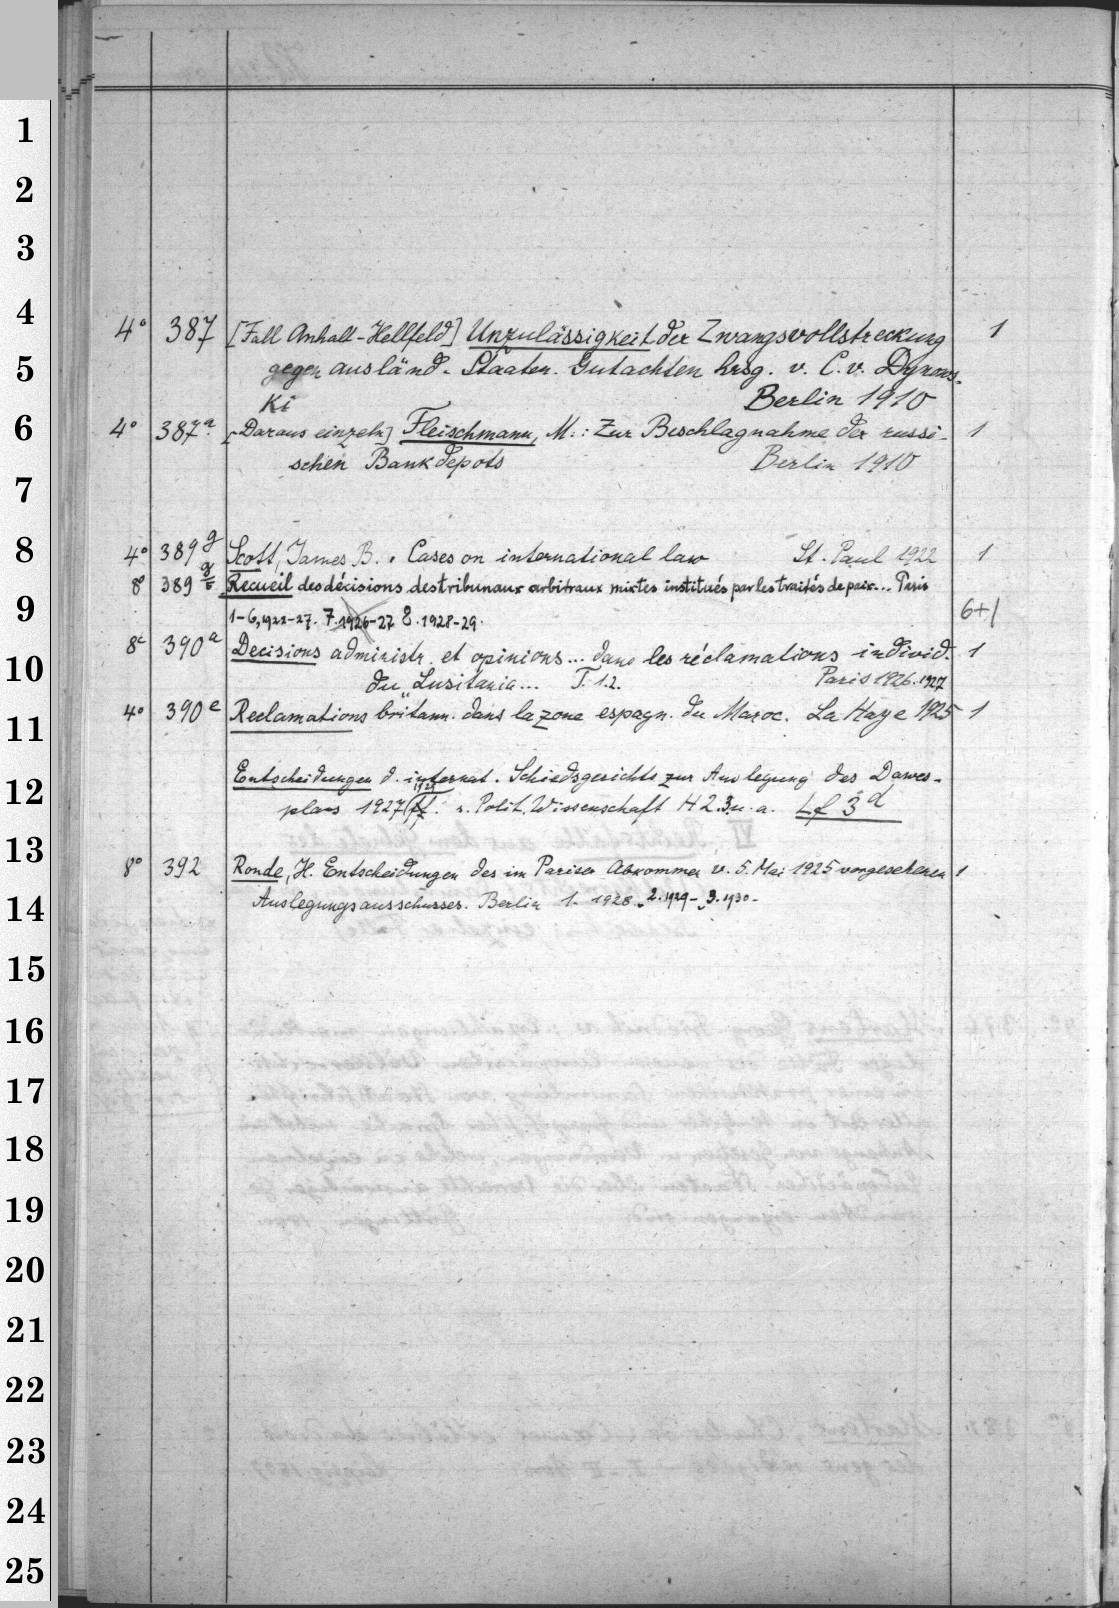 1
2
3
4
4° 387 [Fall Anhalt-Hellfeld] Unzulässigkeit der Zwangsvollstreckung 1
5
gegen ausländ. Staaten. Gutachten hrsg. v. C. v. Dynows-
ki Berlin 1910
6
4° 387a [Daraus einzeln] Fleischmann, M.: Zur Beschlagnahme der russi- 1
schen Bankdepots Berlin 1910
7
8
4° 389g Scott, James B. Cases on international law St. Paul 1922 1
8° 389 Recueil des décisions des tribunaux arbitraux mixtes institués par les traités de paix... Paris
9
1-6, 1922-27. 7. 1926-27 8. 1928-29. 6+1
8° 390a Decisions administr. et opinions... dans les réclamations individ. 1
10
du „Lusitania... T. 1.2. Paris 1926.1927
4° 390e Reclamations britann. dans la zone espagn. du Maroc. La Haye 1925 1
11
Entscheidungen d. internat. Schiedsgerichts zur Auslegung des Dawes-
12
plans 1927/ Polit. Wissenschaft H 2.3 u. a. Lf 3d
13
8° 392 Ronde, H. Entscheidungen des im Pariser Abkommen v. 5. Mai 1925 vorgesehenen 1
14
Auslegungsausschusses. Berlin 1. 1928. 2. 1929- 3. 1930-
15
16
17
18
19
20
21
22
23
24
25